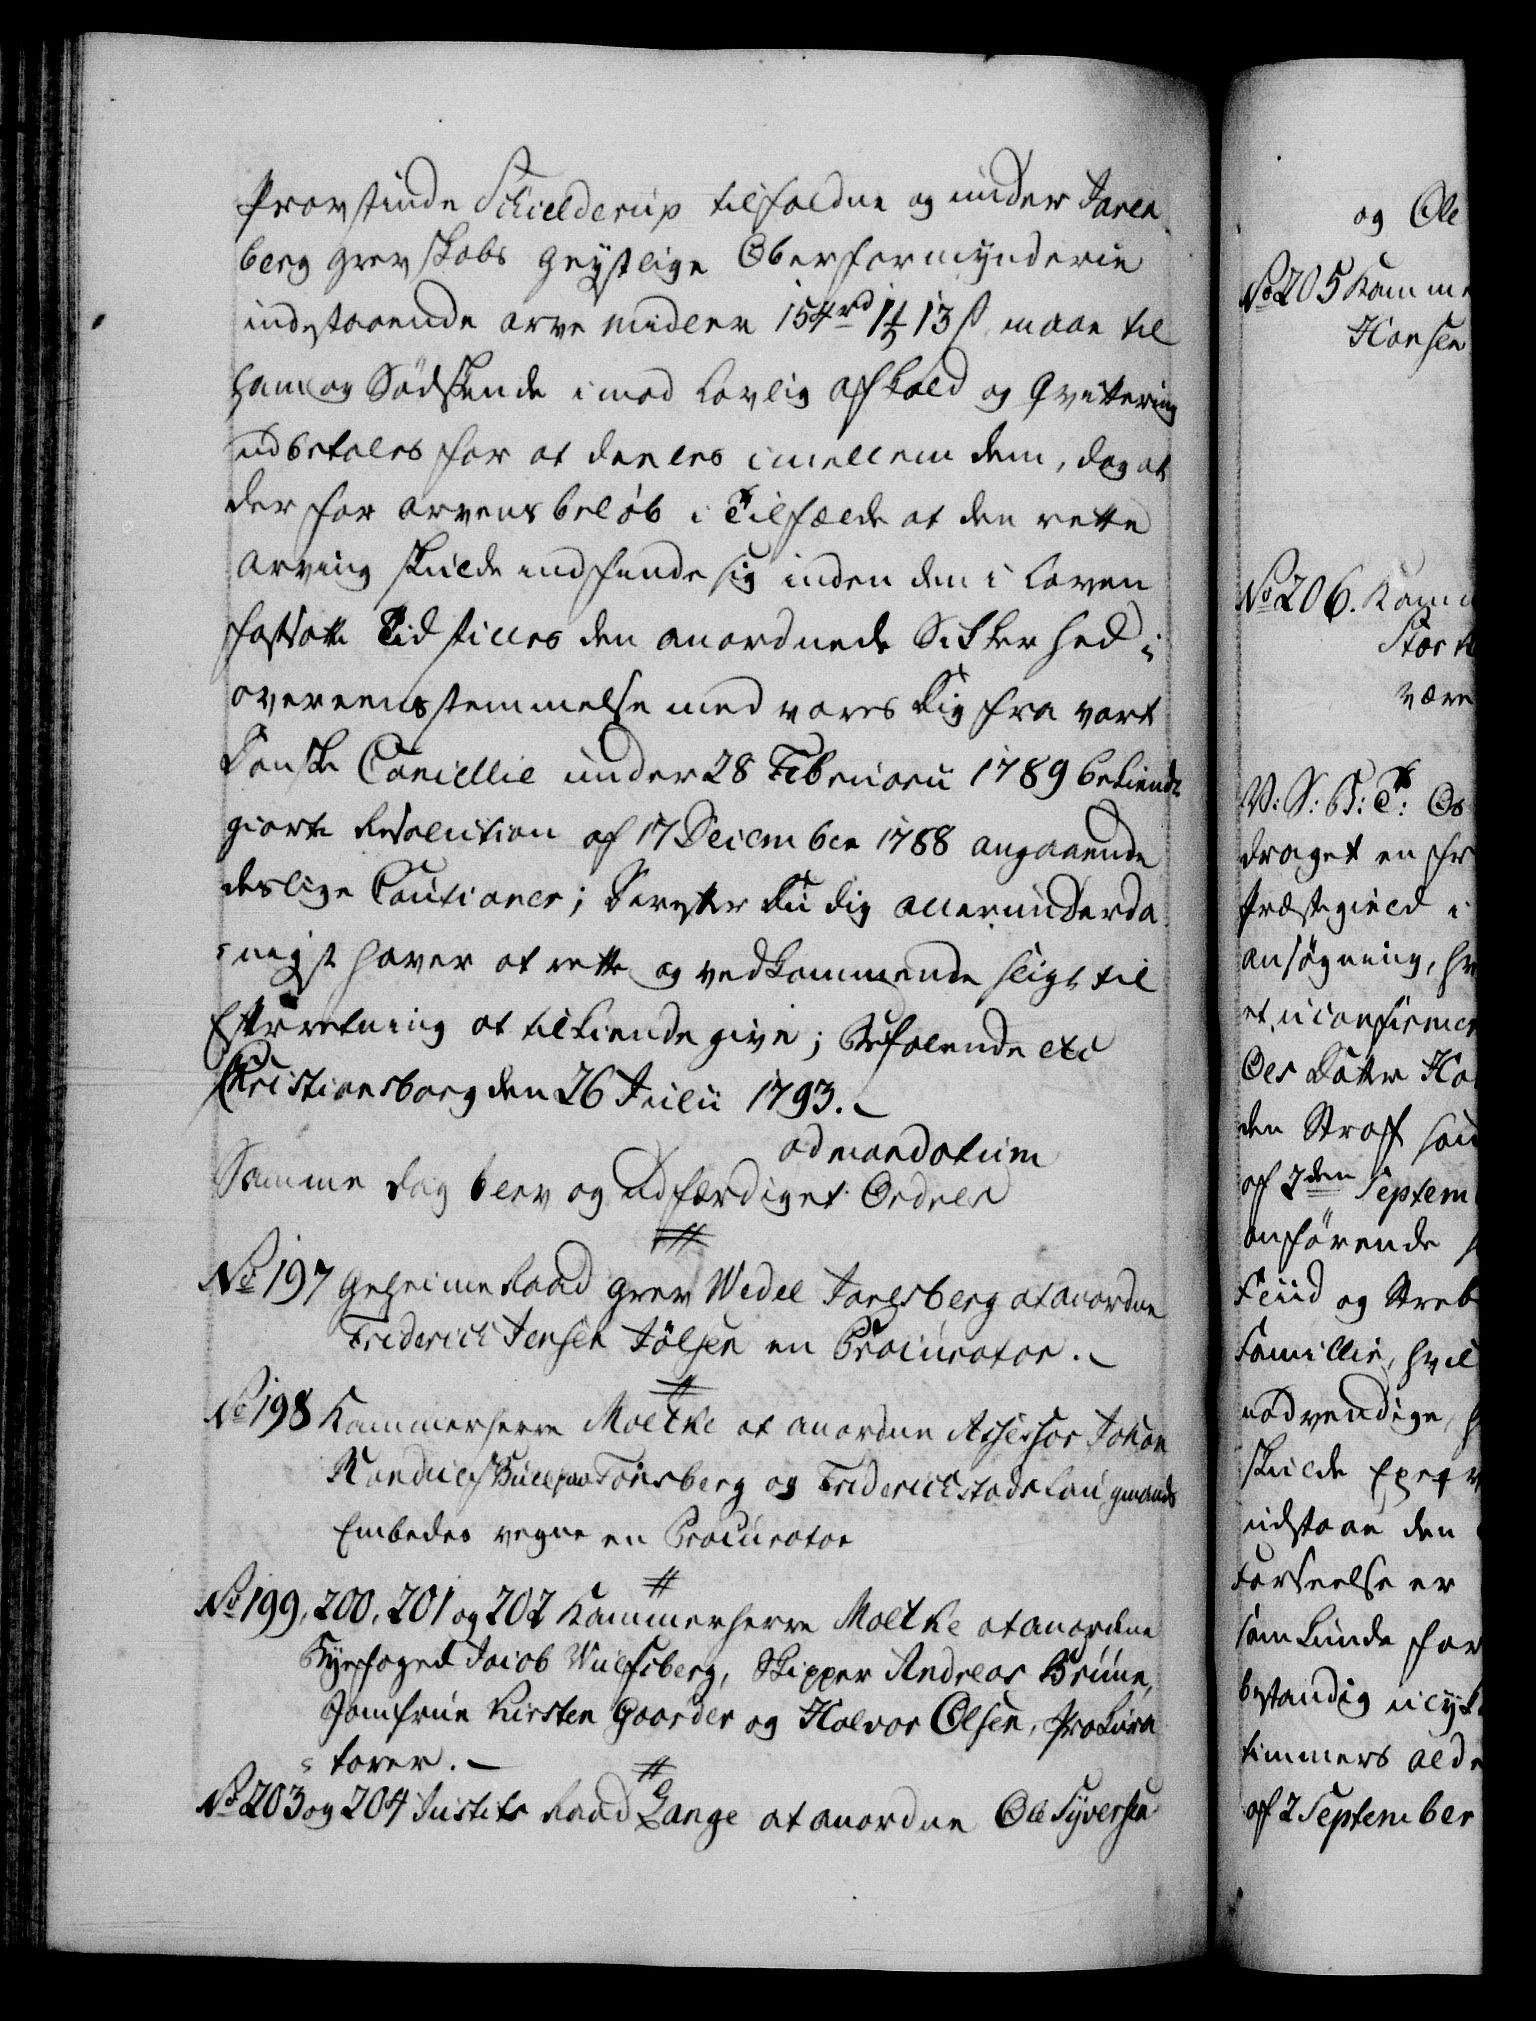 Provstinde Schielderup tilfaldne og under Jarls
berg Grevskabs Geistlige Oberformynderie
indestaaende arve midler 154 rd 1 ₰ 13 s, maae til
ham og Södskende imod lovlig afkald og Qvittering
udbetales for at deeles imellem dem, dog at
der for arvens beløb i Tilfælde at den rette
Arving skulde indfinde sig inden den i Loven
fastsatte Tid stilles den anordnede Sikkerhed i
overeensstemmelse med vores Dig fra vort
Danske Cancellie under 28 Februarii 1789 bekiendt
giorte Resolution af 17 December 1788 angaaende
deslige Cautioner; Derefter Du dig allerunderda
nigst haver at rette og vedkommende sligt til
Efterretning at tilkiende give; Befalende etc
Christiansborg den 26 Julii 1793.
ad mandatum
Samme dag blev og udfærdiget Ordrer
No 197 Geheime Raad Grev Wedel Jarlsberg at anordne
Friderich Jensen Jölsen en Procurator.
No 198 Kammerherre Moltke at anordne Assessor Johan
Randulf Bull paa Tönsberg og Friderichstads Laugmands
Embedes vegne en Procurator
No 199, 200, 201 og 202 Kammerherre Moltke at anordne
Byefoged Jacob Wulfsberg, Skipper Andreas Bruun,
Jomfrue Kirsten Gaarder og Halvor Olsen, Prokura
torer.
No 203 og 204 Justits Raad Lange at anordne Ole Syversen
og Ole
No 205 Kamme
Hansen
No 206. Kam
være
V: S: B: T: Os
draget en
Præstegield i
ansøgning,
et uconfirmer
Oles Datter
den Straf
af 7den Septem
anførende
Fliid og Streb
Familie,
nødvendige,
skulde
udstaae den
Forseelse er
som kunde for
bestandig
timmers
af 2 September